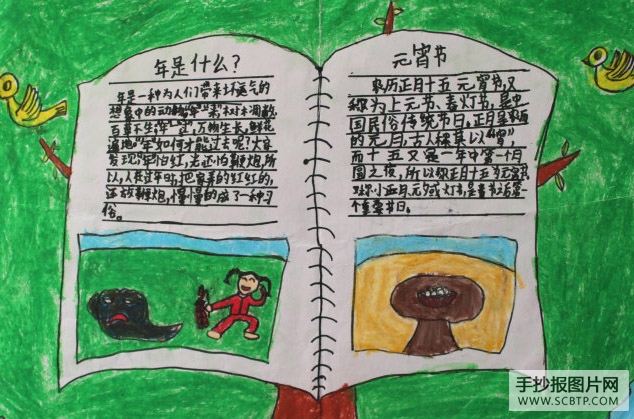 年是什么?
年是一种为人们带来坏运气的
想象中的动物。"年"来,树木凋敝,
百草不生;年"过",万物生长,鲜花
遍地。"年"如何才能过去呢?大家
发现,年怕红,光还怕鞭炮,所
以,人们过年时,把家弄的红红的,
还放鞭炮,慢慢的成了一种习
俗。
元宵节
农历正月十五元宵节,又
称为上元节、春灯节,是中
国民俗传统节日,正月是农历
的元月,古人称其以"宵",
而十五又是一年中第一个月
圆之夜,所以称正月十五为元宵节
又称小正月、元夕或灯节,是春节之后第一
个重要节日。
手抄报图片网
WWW.SCBTP.COM